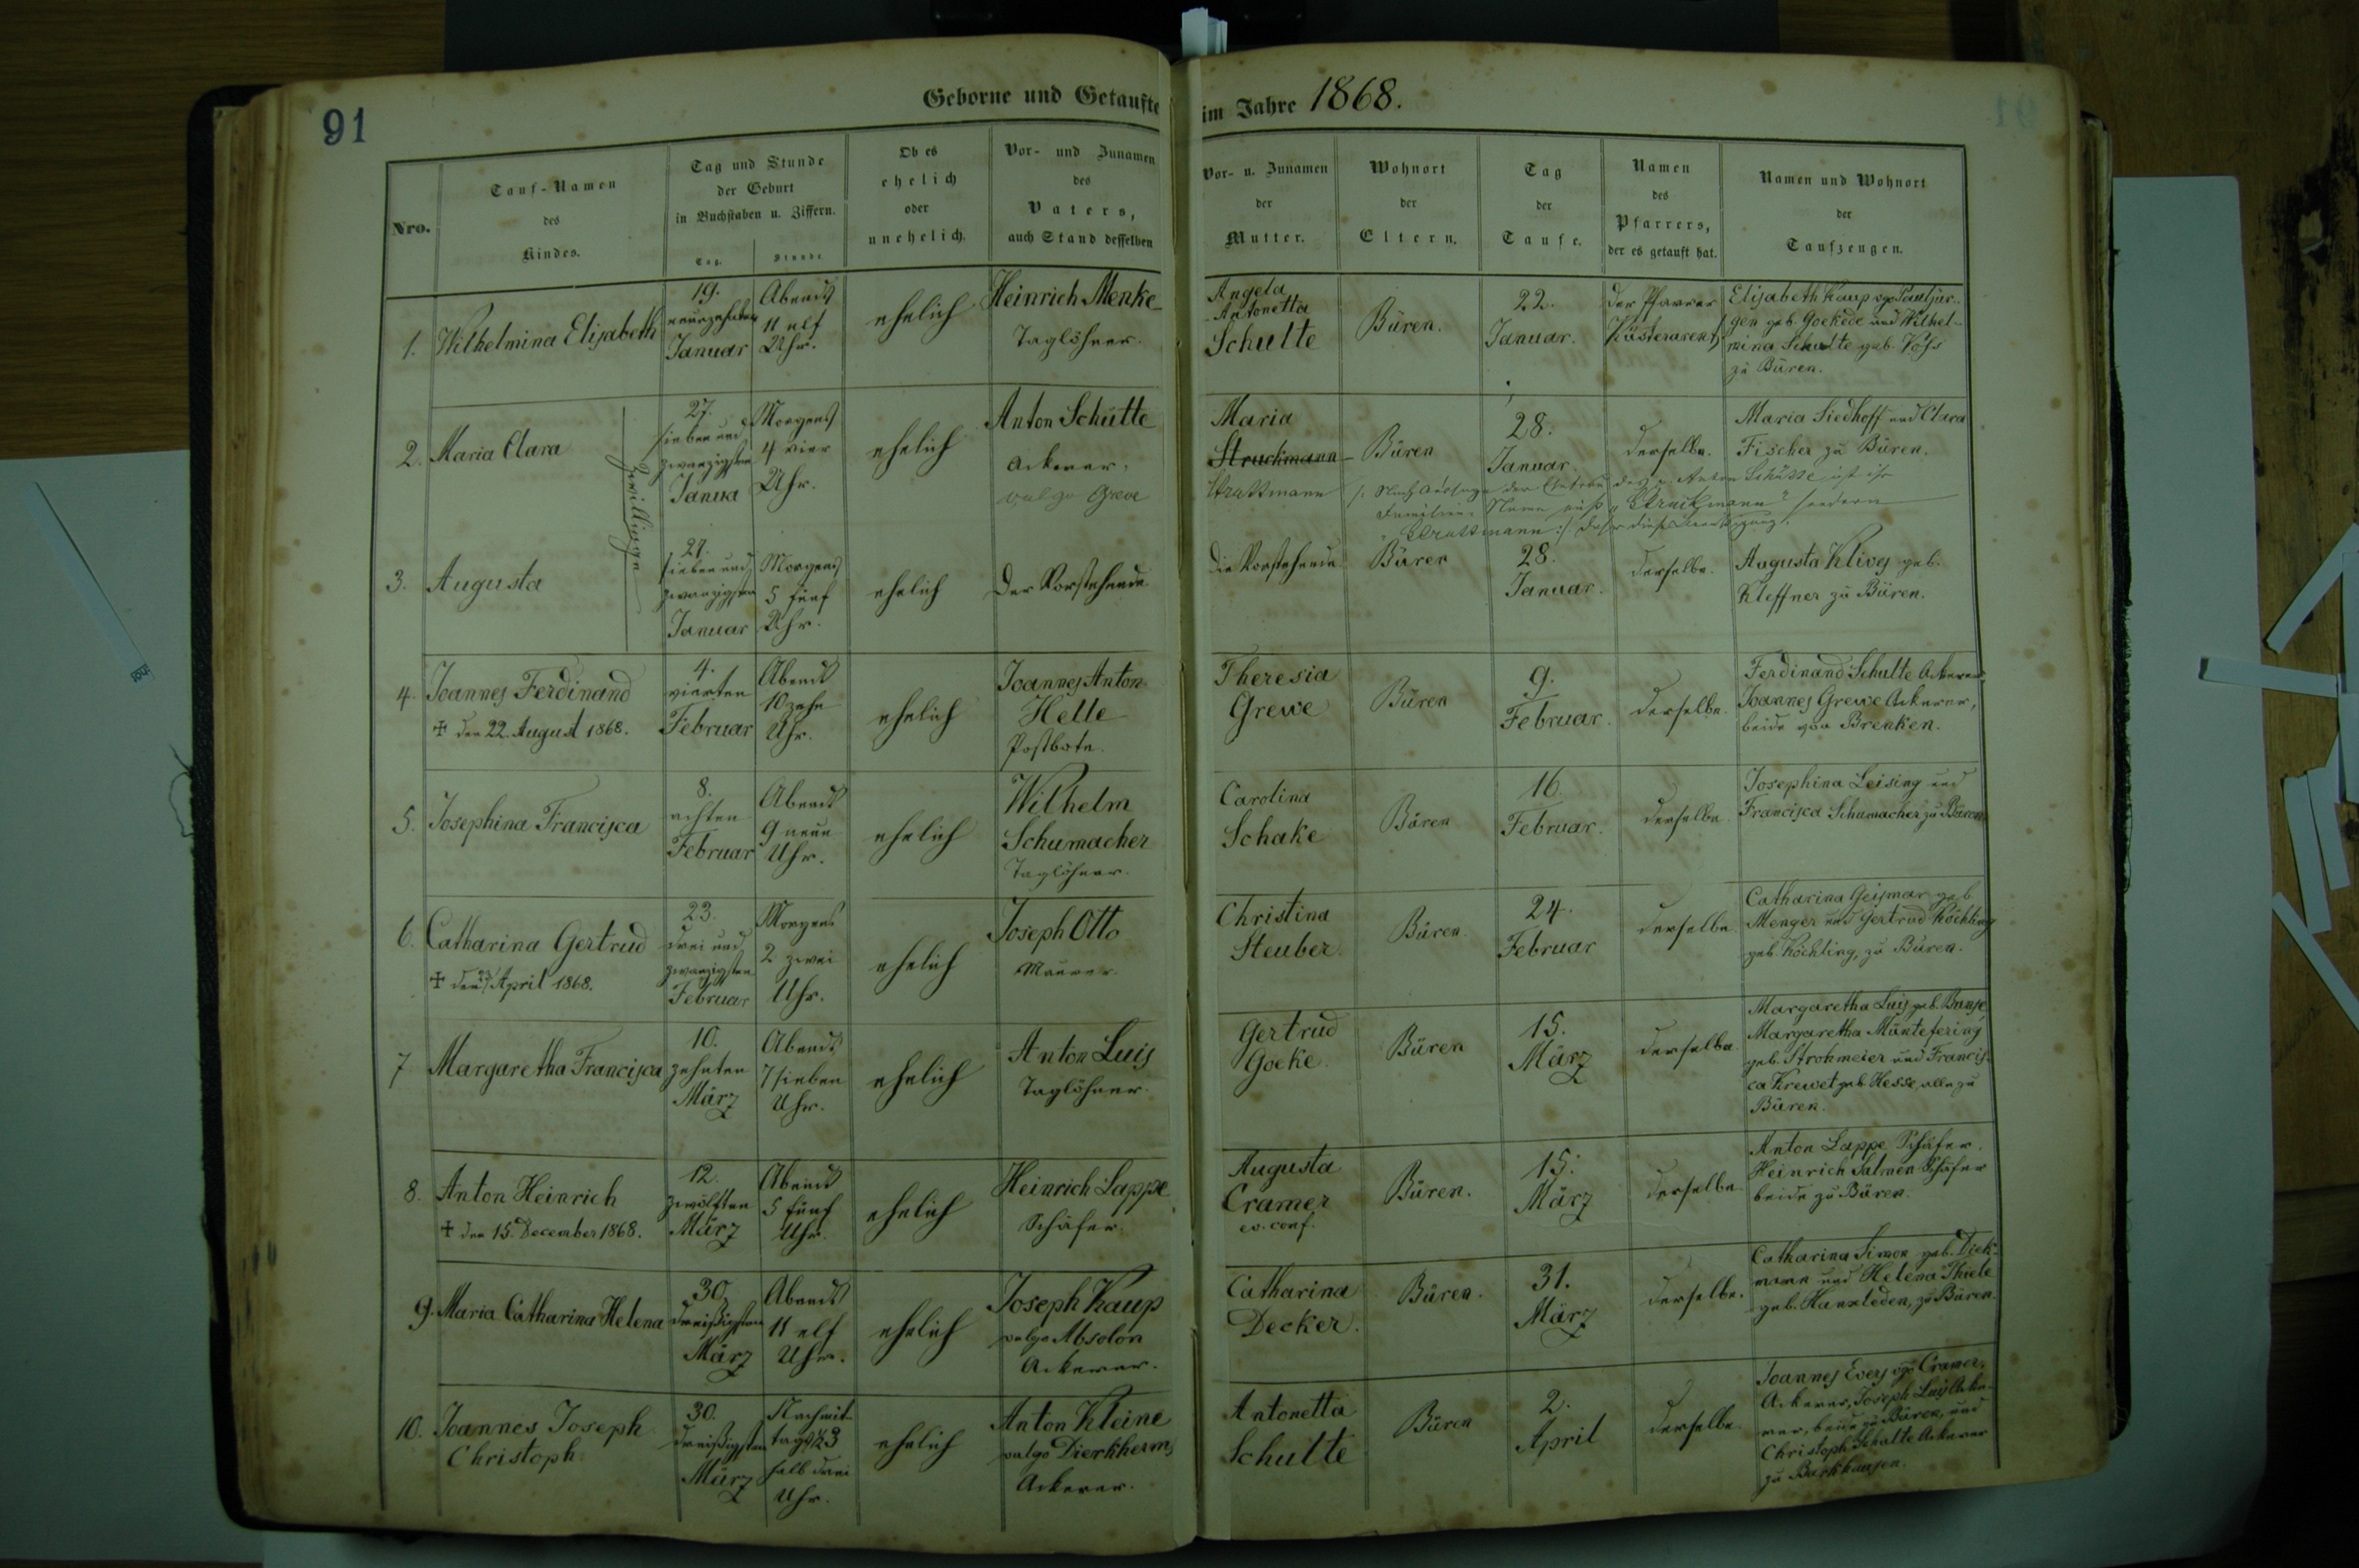 91
Geborne und Getaufte im Jahre 1868.
Nro.
Tauf-Namen
des
Kindes.
Tag und Stunde
der Geburt
in Buchstaben u. Ziffern.
Tag.
Stunde
Ob es
ehelich
oder
unehelich.
Vor- und Zunamen
des
Vaters,
auch Stand desselben
Vor- u. Zunamen
der
Mutter.
Wohnort
der
Eltern.
Tag
der
Taufe.
Namen
des
Pfarrers,
der es getauft hat.
Namen und Wohnort
der
Taufzeugen.
1.
Wilhelmina Elisabeth
19.
neunzehnten
Januar
Abends
11 elf
Uhr.
ehelich
Heinrich Menke
Taglöhner.
Angela
Antonetta
Schulte
Büren.
22.
Januar.
der Pfarrer
Küsterarent
Elisabeth Kaup vgo Pauljür-
gen geb. Goekede und Wilhel-
mina Schulte geb. Voß
zu Büren.
2.
Maria Clara
Zwillinge
27.
sieben und
zwanzigsten
Janua
Morgens
4 vier
Uhr.
ehelich
Anton Schütte
Ackerer.
vulgo Greve
Maria
Struckmann
Strattmann
Büren
28.
Januar.
derselbe.
Maria Siedhoff und Clara
Fischer zu Büren.
/: Nach Aussage der Ehefrau des Anton Schütte ist ihr
Familien-Name nicht "Struckmann" sondern
"Strattmann" :/ daher diese
3.
Augusta
27.
sieben und
zwanzigsten
Januar
Morgens
5 fünf
Uhr.
ehelich
Der Vorstehende.
Die Vorstehende
Büren
28.
Januar.
derselbe.
Augusta Klives geb.
Kleffner zu Büren.
4.
Joannes Ferdinand
✝ den 22. August 1868.
4.
vierten
Februar
Abends
10 zehn
Uhr.
ehelich
Joannes Anton
Helle
Postbote.
Theresia
Grewe
Büren
9.
Februar.
derselbe.
Ferdinand Schulte Ackerer,
Joannes Grewe Ackerer,
beide von Brenken.
5.
Josephina Francisca
8.
achten
Februar
Abends
9 neun
Uhr.
ehelich
Wilhelm
Schumacher
Taglöhner.
Carolina
Schake
Büren
16.
Februar.
derselbe.
Josephina Leising und
Francisca Schumacher zu Büren
6.
Catharina Gertrud
✝ den April 1868.
23.
drei und
zwanzigsten
Februar
Morgens
2 zwei
Uhr.
ehelich
Joseph Otto
Maurer.
Christina
Steuber.
Büren.
24.
Februar
derselbe.
Catharina Geismar geb.
Menger und Gertrud Köchling
geb. Köchling, zu Büren.
7
Margaretha Francisca
10.
zehnten
März
Abends
7 sieben
Uhr.
ehelich
Anton Luis
Taglöhner.
Gertrud
Goeke
Büren
15.
März
derselbe.
Margaretha Luis geb. Banse,
Margaretha Müntefering
geb. Strohmeier und Francis-
ca Krewet geb. Hesse, alle zu
Büren.
8.
Anton Heinrich
✝ den 15. December 1868.
12.
zwölften
März
Abends
5 fünf
Uhr.
ehelich
Heinrich Lappe
Schäfer.
Augusta
Cramer
ev. conf.
Büren.
15.
März
derselbe.
Anton Lappe, Schäfer,
Heinrich Salmen Schäfer
beide zu Büren.
9.
Maria Catharina Helena
30.
dreißigsten
März
Abends
11 elf
Uhr.
ehelich
Joseph Kaup
vulgo Absolon
Ackerer.
Catharina
Decker.
Büren.
31.
März
derselbe.
Catharina Simon geb. Diek-
mann und Helena Thiele
geb. Hanxleden, zu Büren.
10.
Joannes Joseph
Christoph
30.
dreißigsten
März
Nachmit-
tags ½3
halb drei
Uhr.
ehelich
Anton Kleine
vulgo Dierkherm
Ackerer.
Antonetta
Schulte
Büren
2.
April
derselbe.
Joannes Evers vgo Cramer,
Ackerer, Joseph Luis Acke-
rer, beide zu Büren, und
Christoph Schulte Ackerer
zu Barkhausen.